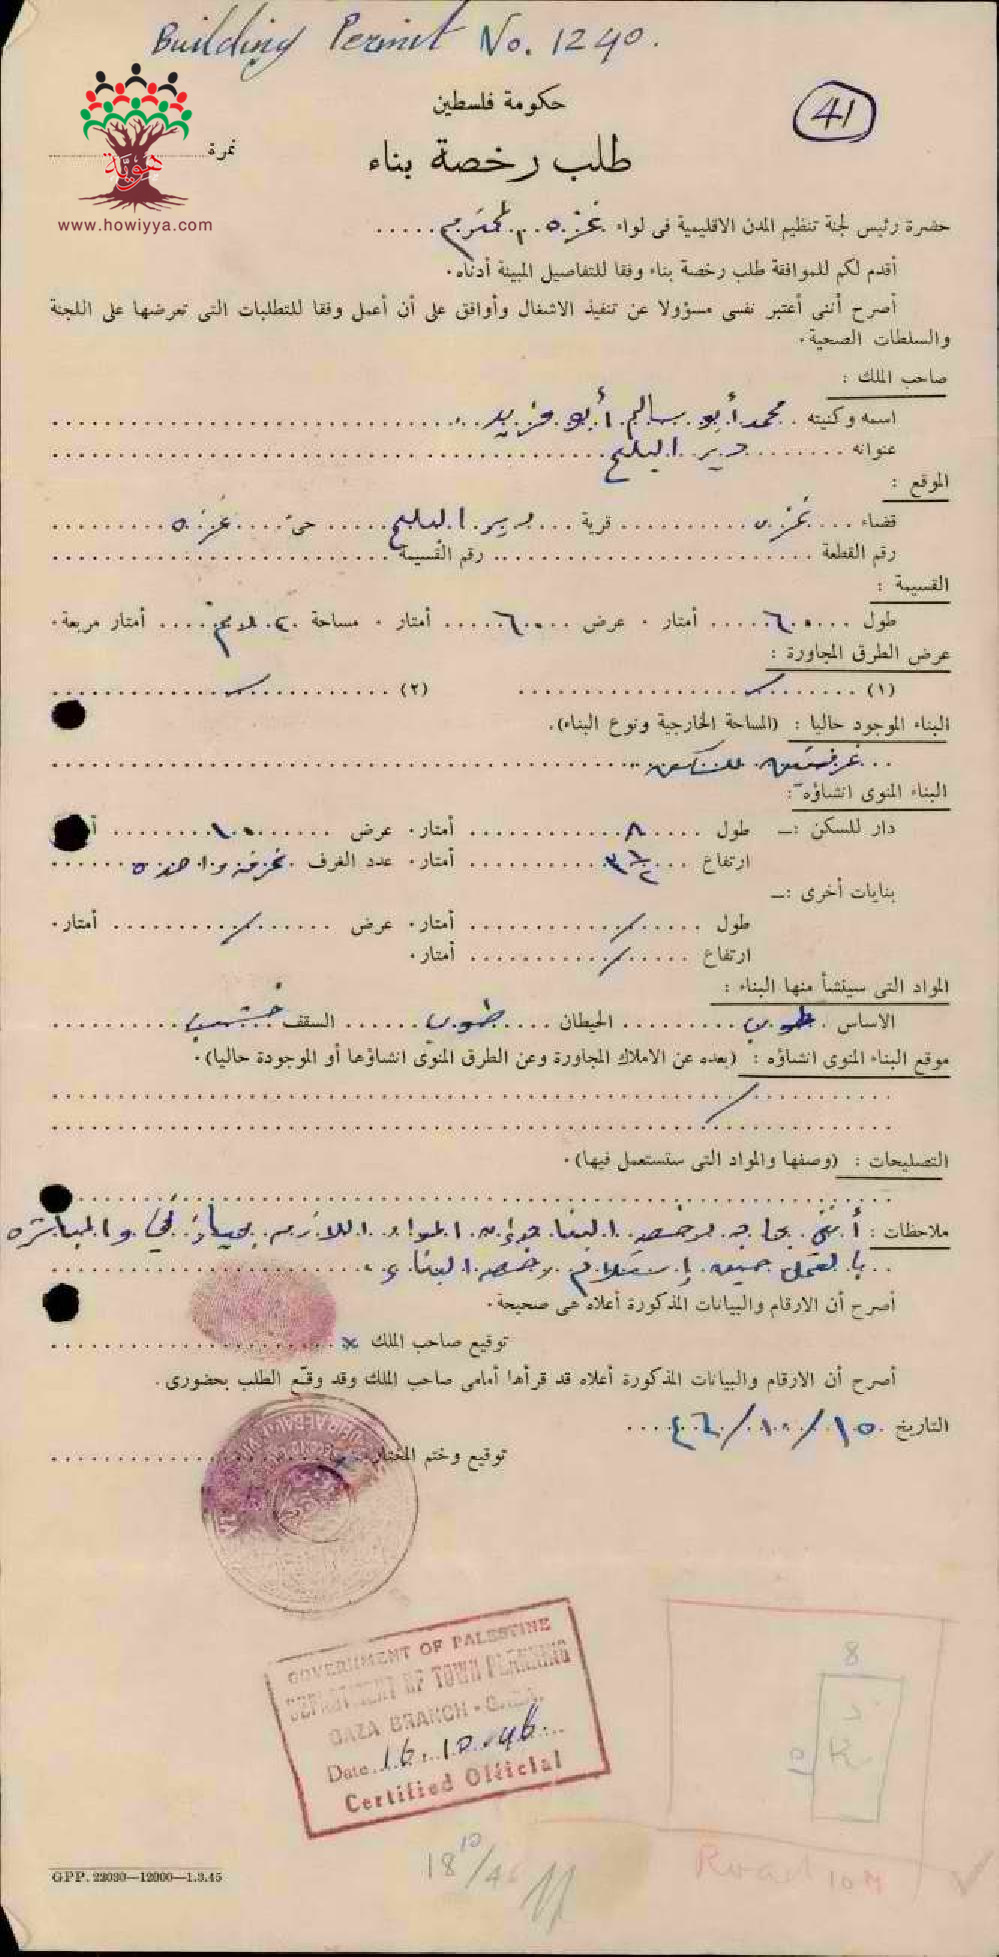 Building Permit No. 1240.
حكومة فلسطين
41
طلب رخصة بناء
نمرة
هوية
www.howiyya.com
حضرة رئيس لجنة تنظيم المدن الاقليمية فى لواء غزه المحترم
أقدم لكم للموافقة طلب رخصة بناء وفقا للتفاصيل المبينة أدناه.
أصرح أننى أعتبر نفسى مسؤولا عن تنفيذ الاشغال وأوافق على أن أعمل وفقا للمتطلبات التى تعرضها على اللجنة
والسلطات الصحية.
صاحب الملك :
اسمه وكنيته محمد أبو سالم أبو مزيد
عنوانه دير البلح
الموقع :
قضاء غزه قرية دير البلح حى غزه
رقم القطعة رقم القسيمة
القسيمة :
طول ٦٠ أمتار . عرض ٦٠ أمتار . مساحة أمتار مربعة.
عرض الطرق المجاورة :
(١) (٢)
البناء الموجود حاليا : (المساحة الخارجية ونوع البناء).
غرفتين للسكن
البناء المنوى انشاؤه :
دار للسكن :ــ طول ٨ أمتار. عرض ١٠
ارتفاع ٣ ١/٢ أمتار. عدد الغرف غرفه واحده
بنايات أخرى :ــ
طول / أمتار. عرض / أمتار.
ارتفاع / أمتار.
المواد التى سينشأ منها البناء :
الاساس طوب الحيطان طوب السقف خشب
موقع البناء المنوى انشاؤه : (بعده عن الاملاك المجاورة وعن الطرق المنوى انشاؤها أو الموجودة حاليا).
التصليحات : (وصفها والمواد التى ستستعمل فيها).
ملاحظات : أننى بحاجه لرخصة البنا وان المواد اللازمه بحيازتي والمباشره
بالعمل حين إستلام رخصة البناء
أصرح أن الارقام والبيانات المذكورة أعلاه هى صحيحة.
توقيع صاحب الملك ×
أصرح أن الارقام والبيانات المذكورة أعلاه قد قرأها أمامى صاحب الملك وقد وقّع الطلب بحضورى.
التاريخ ١٥/١٠/٤٦
توقيع وختم المختار
GOVERNMENT OF PALESTINE
DEPARTMENT OF TOWN PLANNING
GAZA BRANCH - GAZA.
Date 16.10.46.
Certified Official
8
10
K
Road 10 M
18/10/46
G.P.P. 22090—12000—1.3.45